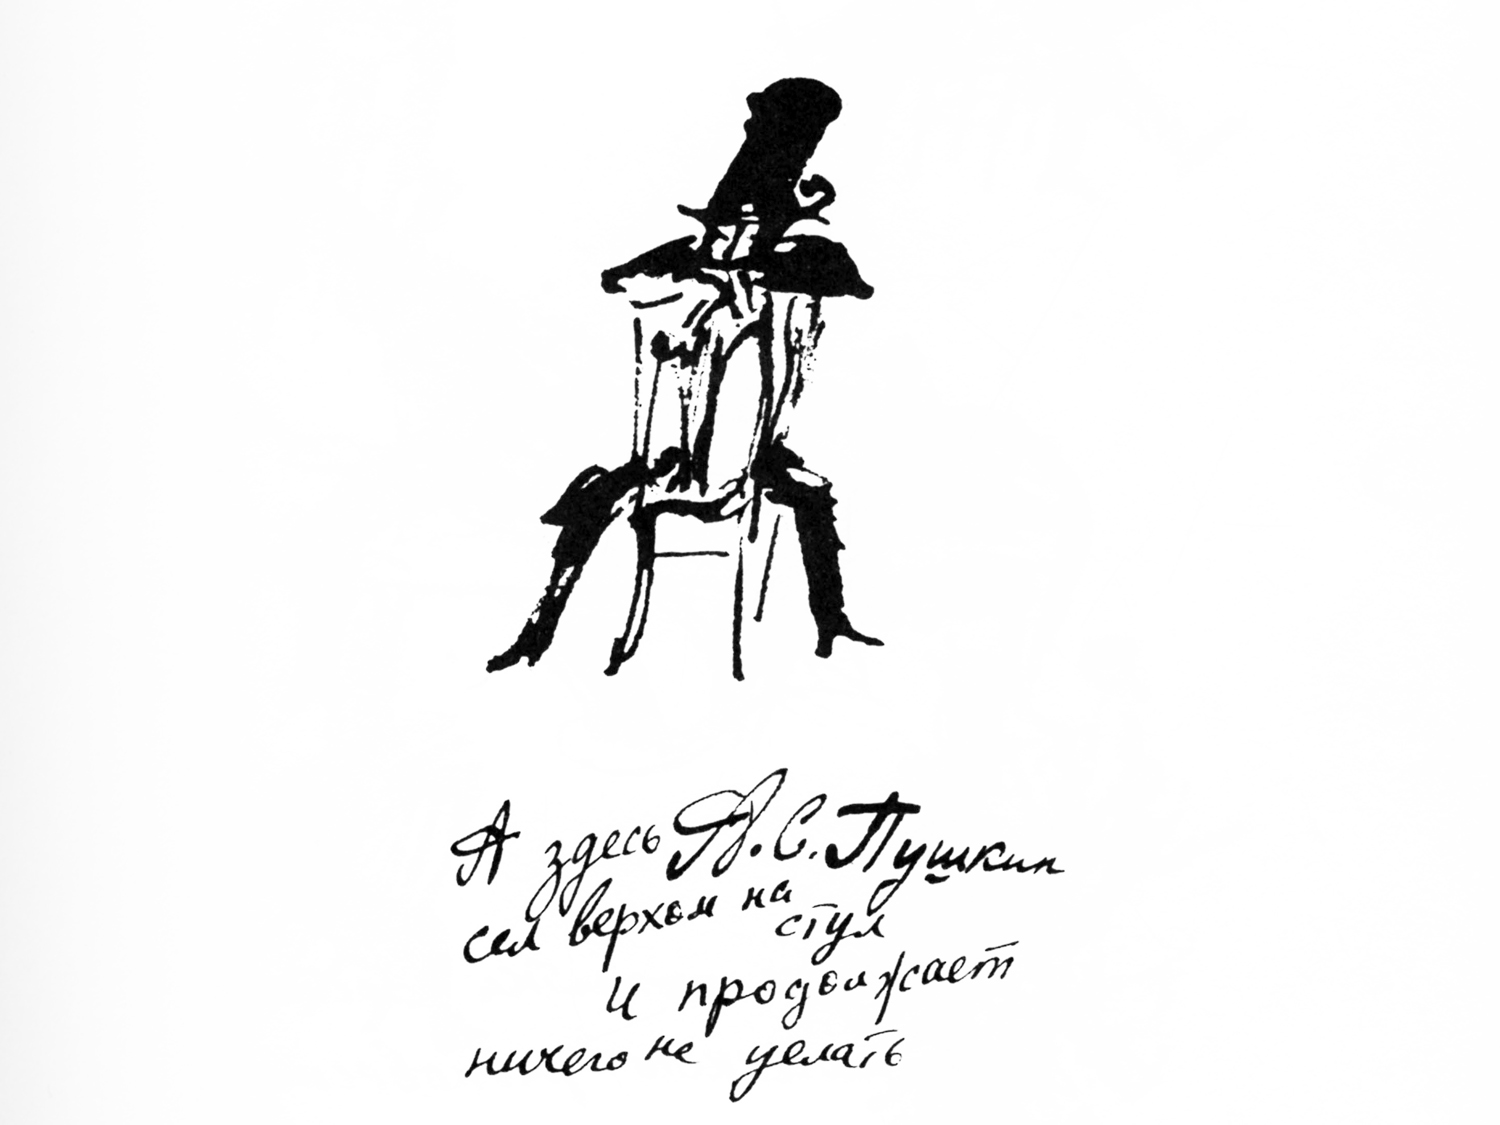 А здесь А. С. Пушкин
сел верхом на
стул
и продолжает
ничего не делать